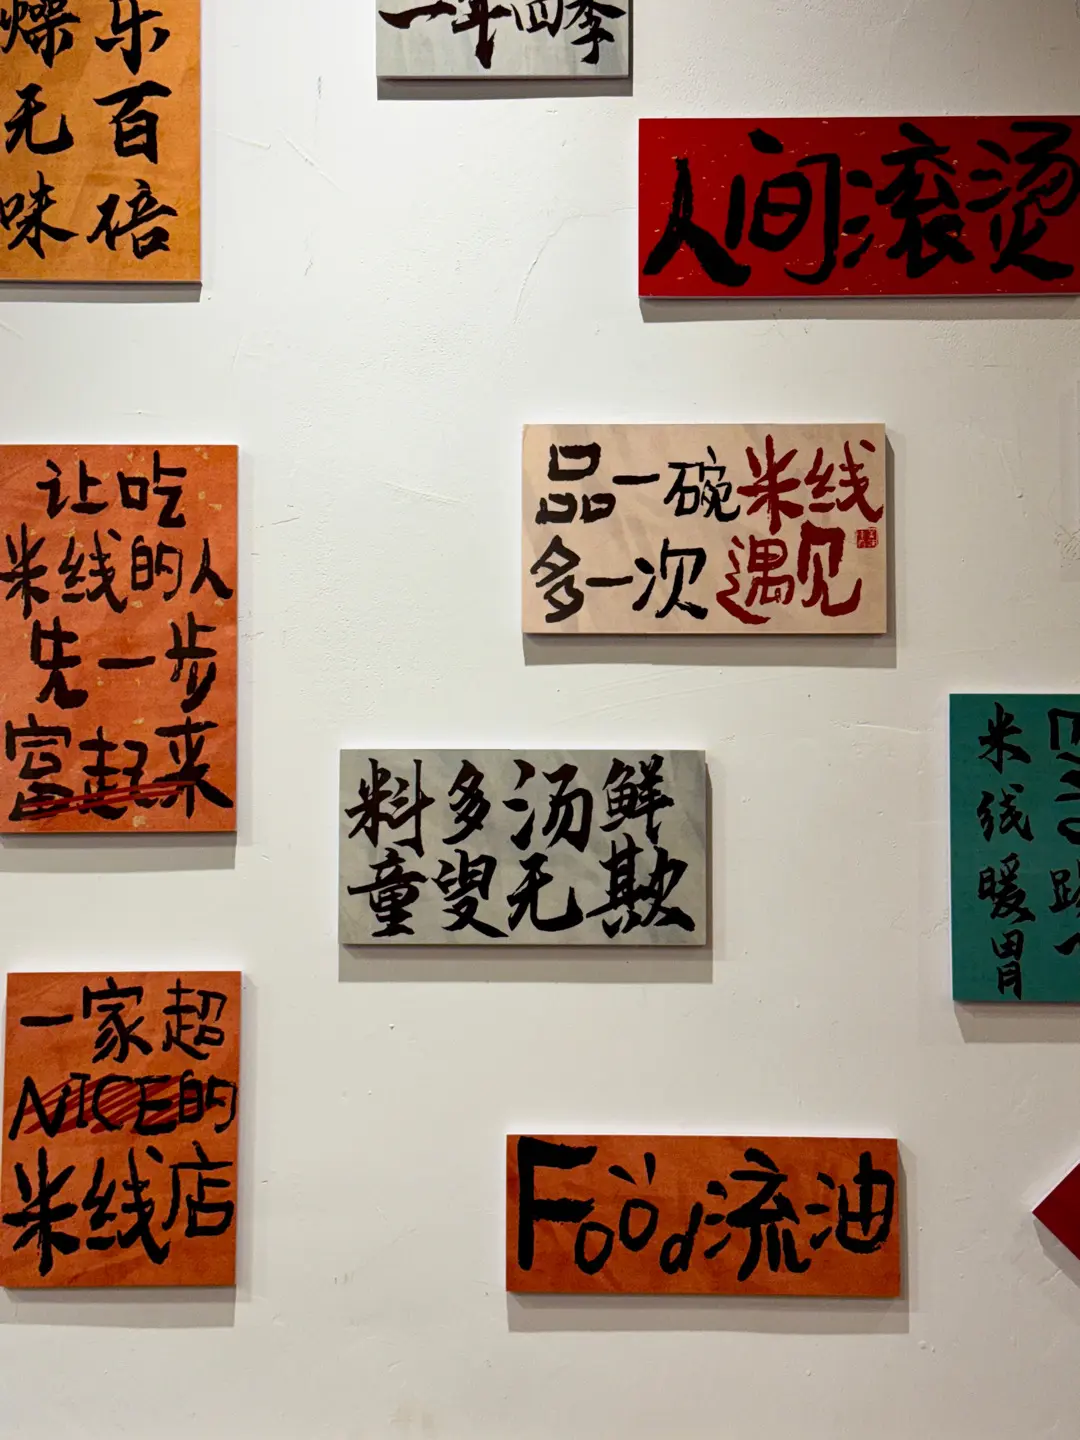 乐百倍
燥无味
一年四季
人间滚烫
品一碗米线
多一次遇见
让吃
米线的人
先一步
富起来
料多汤鲜
童叟无欺
米线暖胃
一家超
NICE的
米线店
Food流油